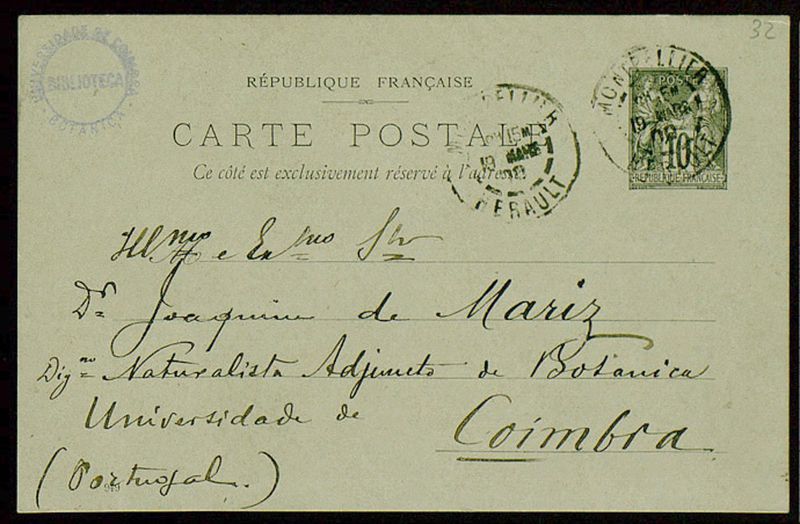 32
UNIVERSIDADE DE COIMBRA
BIBLIOTECA
BOTANICA
RÉPUBLIQUE FRANÇAISE
CARTE POSTALE
Ce côté est exclusivement réservé à l'adresse
MONTPELLIER
15 M
19 MARS
HERAULT
MONTPELLIER
19 MARS
POSTES
10
REPUBLIQUE FRANÇAISE
Illmo e Exmo Snr
Dr Joaquim de Mariz
Digno Naturalista Adjuncto de Botanica
Universidade de
Coimbra
(Portugal.)
919